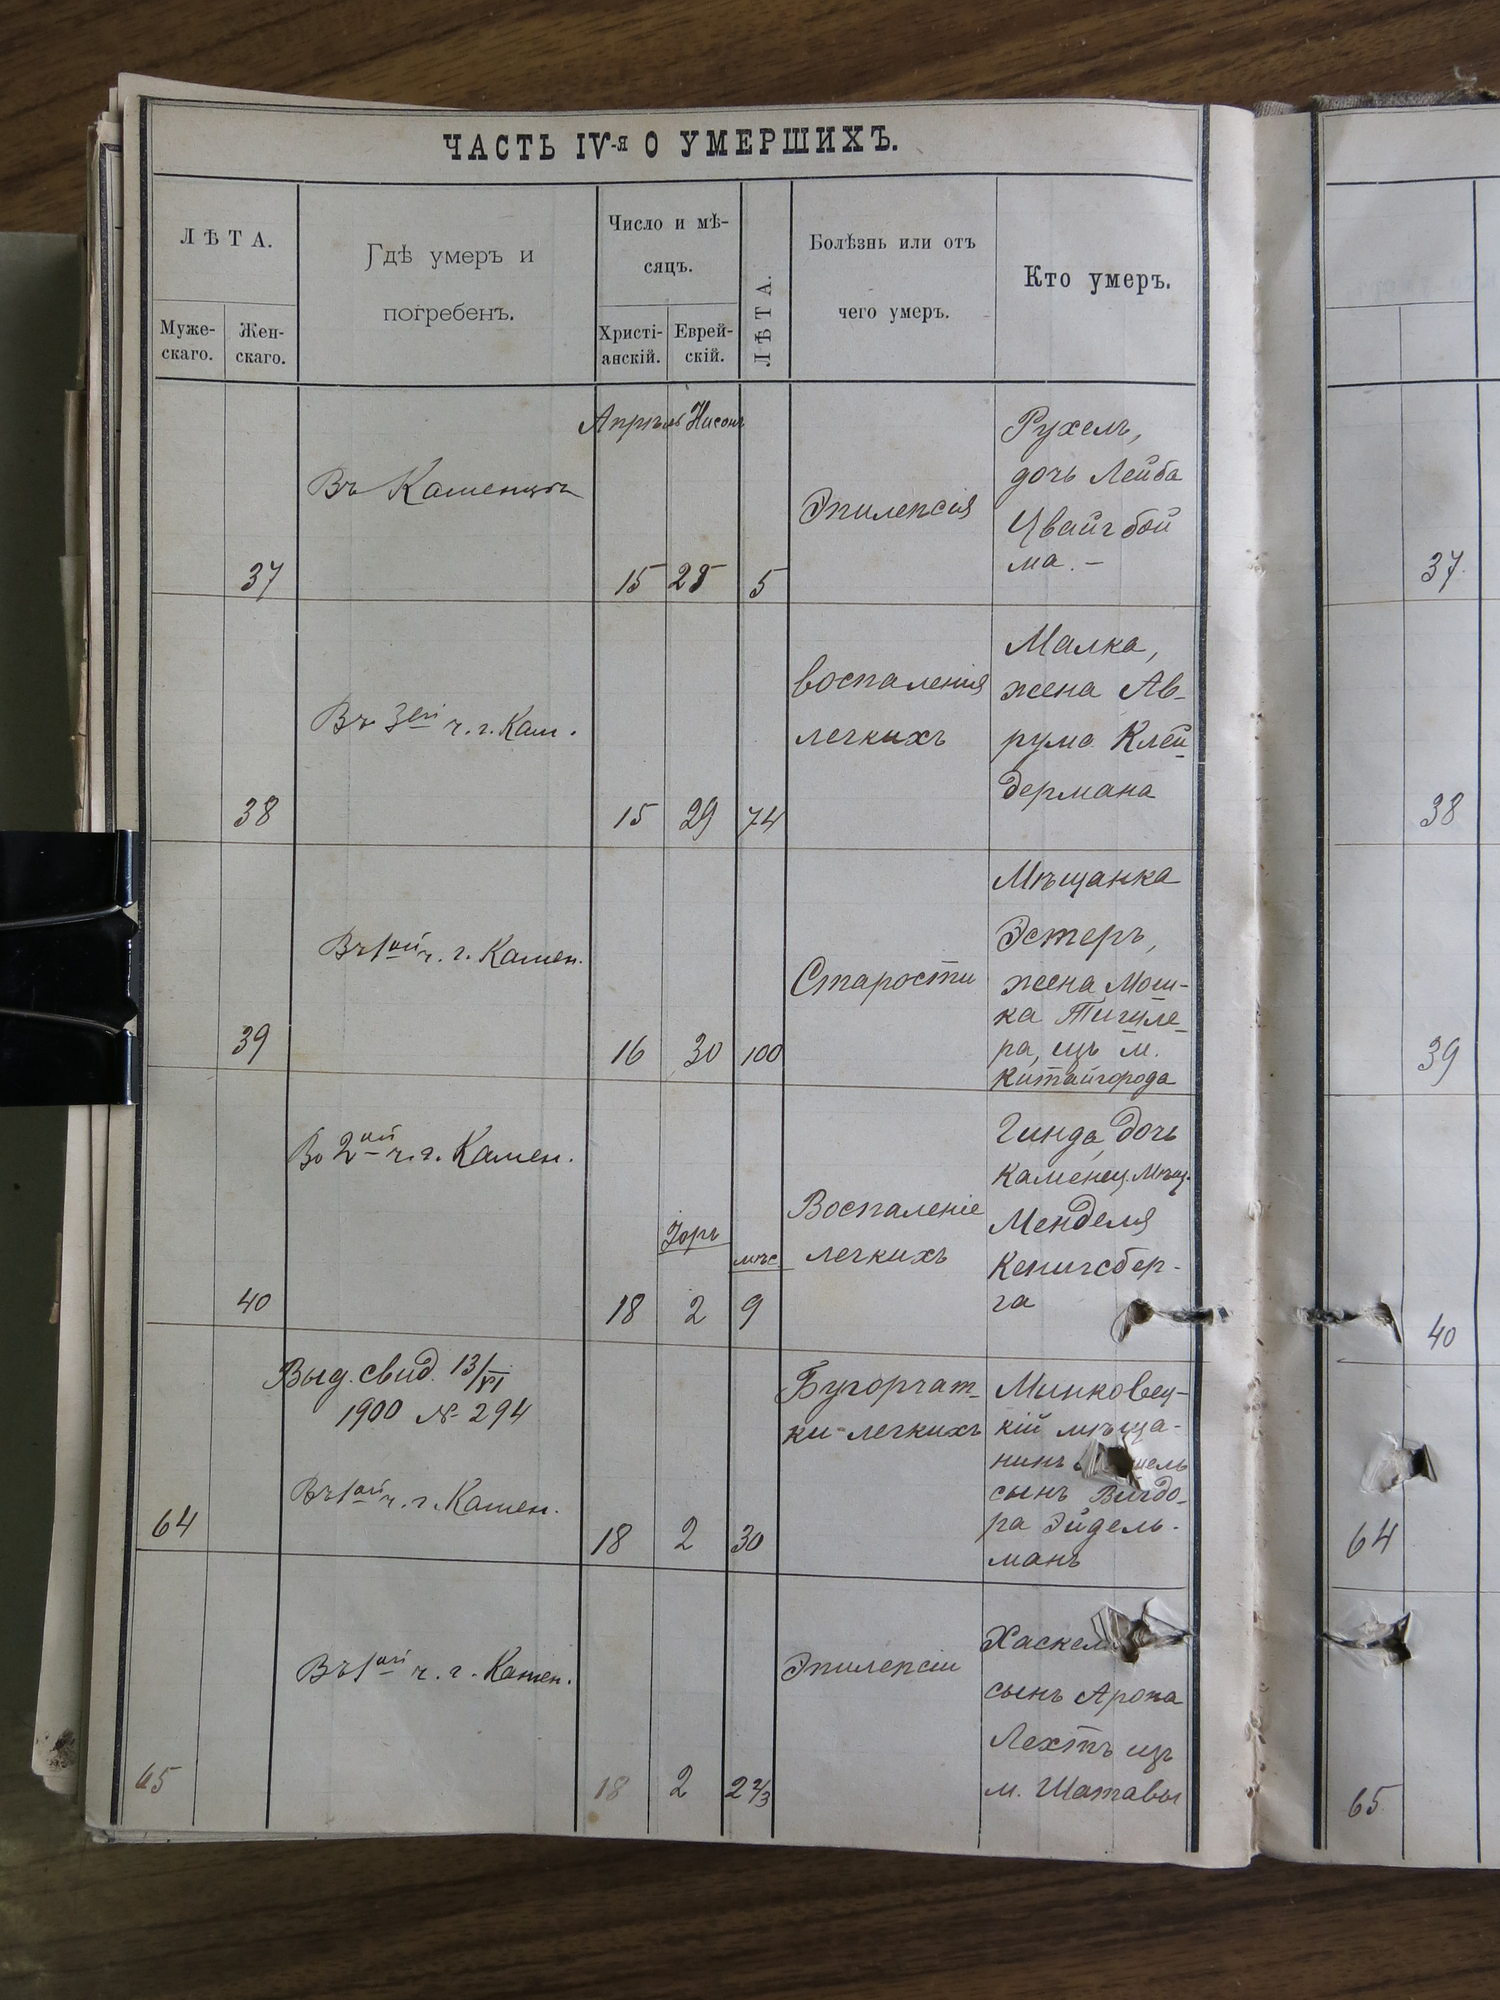 ЧАСТЬ IV-я О УМЕРШИХЪ.
ЛѢТА.
Муже-
скаго.
Жен-
скаго.
Гдѣ умеръ и
погребенъ.
Число и мѣ-
сяцъ.
Христі-
анскій.
Еврей-
скій.
ЛѢТА.
Болѣзнь или отъ
чего умеръ.
Кто умеръ.
Апрѣль Нисонъ
37
Въ Каменцѣ
15 28 5
Эпилепсія
Рухель,
дочь Лейба
Цвайгбой
ма. –
37
38
Въ 3ей ч. г. Кам.
15 29 74
воспаленія
легкихъ
Малка,
жена Ав-
рума Клей-
дермана
38
39
Въ 1ой ч. г. Камен.
16 30 100
Старости
Мѣщанка
Эстеръ,
жена Мош-
ка
ра, изъ м.
Китайгорода
39
40
Во 2ой ч. г. Камен.
Іоръ
мѣс.
18 2 9
Воспаленіе
легкихъ
Гинда, дочь
Каменец. Мѣщ.
Менделя
Кенигсбер-
га
40
Выд. свид. 13/VI
1900 № 294
64
Въ 1ой ч. г. Камен.
18 2 30
Бугорчат-
ки легкихъ
Минковец-
кій мѣща-
нинъ
сынъ Вигдо-
ра Эйдель-
манъ
64
65
Въ 1ой ч. г. Камен.
18 2 2 2/3
Эпилепсіи
Хаскель
сынъ Арона
Лехтъ изъ
м. Шатавы
65